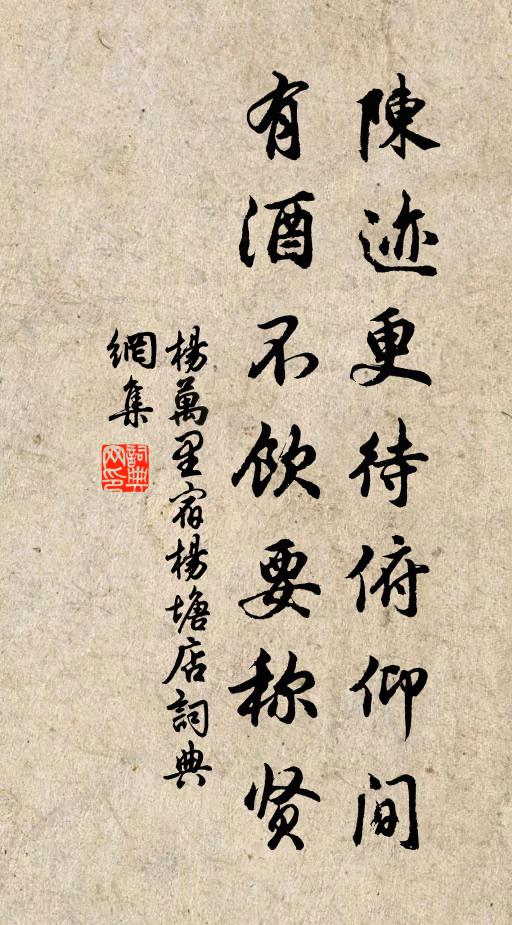 陳迹更待俯仰间
有酒不飲要称贤
楊萬里宿楊塘店詞典
網集
詞典
网印